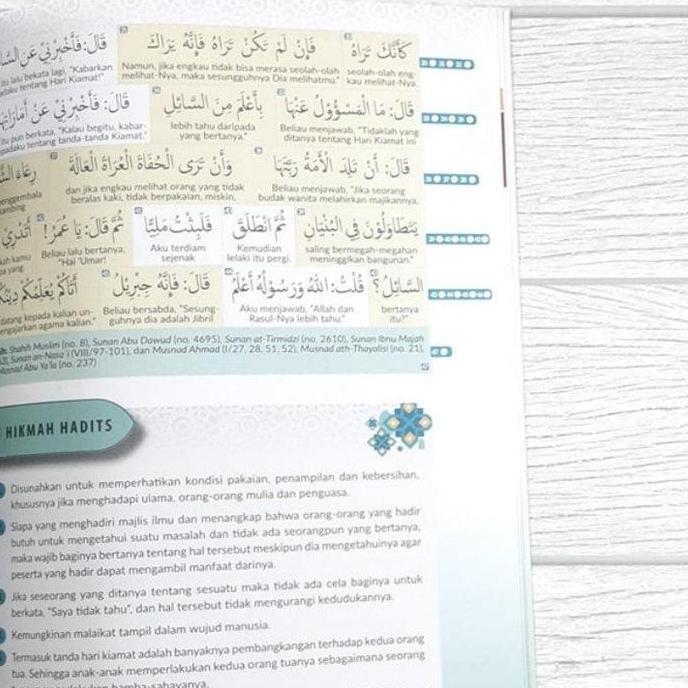 كَأَنَّكَ تَرَاهُ فَإِنْ لَمْ تَكُنْ تَرَاهُ فَإِنَّهُ يَرَاكَ قَالَ: فَأَخْبِرْنِيْ عَنِ
seolah-olah eng-
kau melihat-Nya.
Namun, jika engkau tidak bisa merasa seolah-olah
melihat-Nya, maka sesungguhnya Dia melihatmu."
itu lalu bekata lagi, "Kabarkan
padaku tentang Hari Kiamat!"
قَالَ: مَا الْمَسْؤُوْلُ عَنْهَا بِأَعْلَمَ مِنَ السَّائِلِ قَالَ: فَأَخْبِرْنِيْ عَنْ أَمَارَاتِهَا
Beliau menjawab, "Tidaklah yang
ditanya tentang Hari Kiamat ini
lebih tahu daripada
yang bertanya."
itu pun berkata, "Kalau begitu, kabar-
padaku tentang tanda-tanda Kiamat."
قَالَ: أَنْ تَلِدَ الْأَمَةُ رَبَّتَهَا وَأَنْ تَرَى الْحُفَاةَ الْعُرَاةَ الْعَالَةَ رِعَاءَ
Beliau menjawab, "Jika seorang
budak wanita melahirkan majikannya,
dan jika engkau melihat orang yang tidak
beralas kaki, tidak berpakaian, miskin,
penggembala
kambing
يَتَطَاوَلُوْنَ فِي الْبُنْيَانِ ثُمَّ انْطَلَقَ فَلَبِثْتُ مَلِيًّا ثُمَّ قَالَ: يَا عُمَرُ! أَتَدْرِيْ
saling bermegah-megahan
meninggikan bangunan."
Kemudian
lelaki itu pergi.
Aku terdiam
sejenak
Beliau lalu bertanya,
"Hai 'Umar!
kah kamu
pa yang
السَّائِلُ؟ قُلْتُ: اللهُ وَرَسُوْلُهُ أَعْلَمُ قَالَ: فَإِنَّهُ جِبْرِيْلُ أَتَاكُمْ يُعَلِّمُكُمْ
bertanya
itu?"
Aku menjawab, "Allah dan
Rasul-Nya lebih tahu."
Beliau bersabda, "Sesung-
guhnya dia adalah Jibril
datang kepada kalian un-
mengajarkan agama kalian."
Shahih Muslim (no. 8), Sunan Abu Dawud (no. 4695), Sunan at-Tirmidzi (no. 2610), Sunan Ibnu Majah
Sunan an-Nasa'i (VIII/97-101), dan Musnad Ahmad (I/27, 28, 51, 52), Musnad ath-Thayalisi (no. 21),
Musnad Abu Ya'la (no. 237)
HIKMAH HADITS
Disunahkan untuk memperhatikan kondisi pakaian, penampilan dan kebersihan,
khususnya jika menghadapi ulama, orang-orang mulia dan penguasa.
Siapa yang menghadiri majlis ilmu dan menangkap bahwa orang-orang yang hadir
butuh untuk mengetahui suatu masalah dan tidak ada seorangpun yang bertanya,
maka wajib baginya bertanya tentang hal tersebut meskipun dia mengetahuinya agar
peserta yang hadir dapat mengambil manfaat darinya.
Jika seseorang yang ditanya tentang sesuatu maka tidak ada cela baginya untuk
berkata, "Saya tidak tahu", dan hal tersebut tidak mengurangi kedudukannya.
Kemungkinan malaikat tampil dalam wujud manusia.
Termasuk tanda hari kiamat adalah banyaknya pembangkangan terhadap kedua orang
tua. Sehingga anak-anak memperlakukan kedua orang tuanya sebagaimana seorang
hamba-sahayanya.